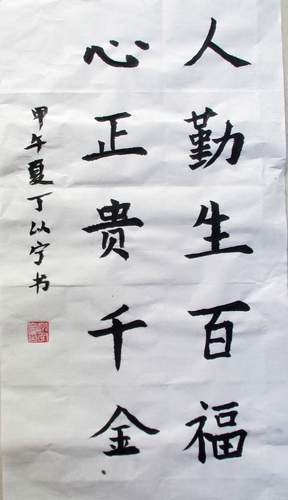 人勤生百福
心正贵千金
甲午夏丁以宁书